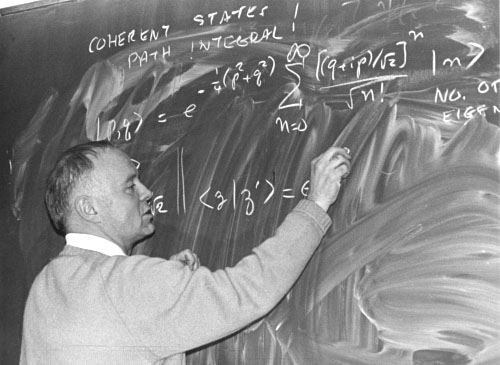 COHERENT STATES !
PATH INTEGRAL !
|p,q> = e^{-\frac{1}{4}(p^2+q^2)} \sum_{n=0}^{\infty} \frac{[(q+ip)/\sqrt{2}]^n}{\sqrt{n!}} |n>
NO. OP
EIGEN
√2 || <z|z'> = e